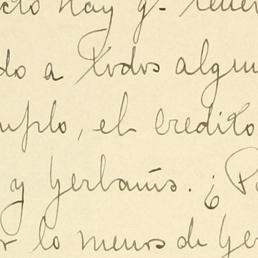 hay q.
do a todos algun
mplo, el credito
y Gerbanis. ¿ P
r lo menos de Ger